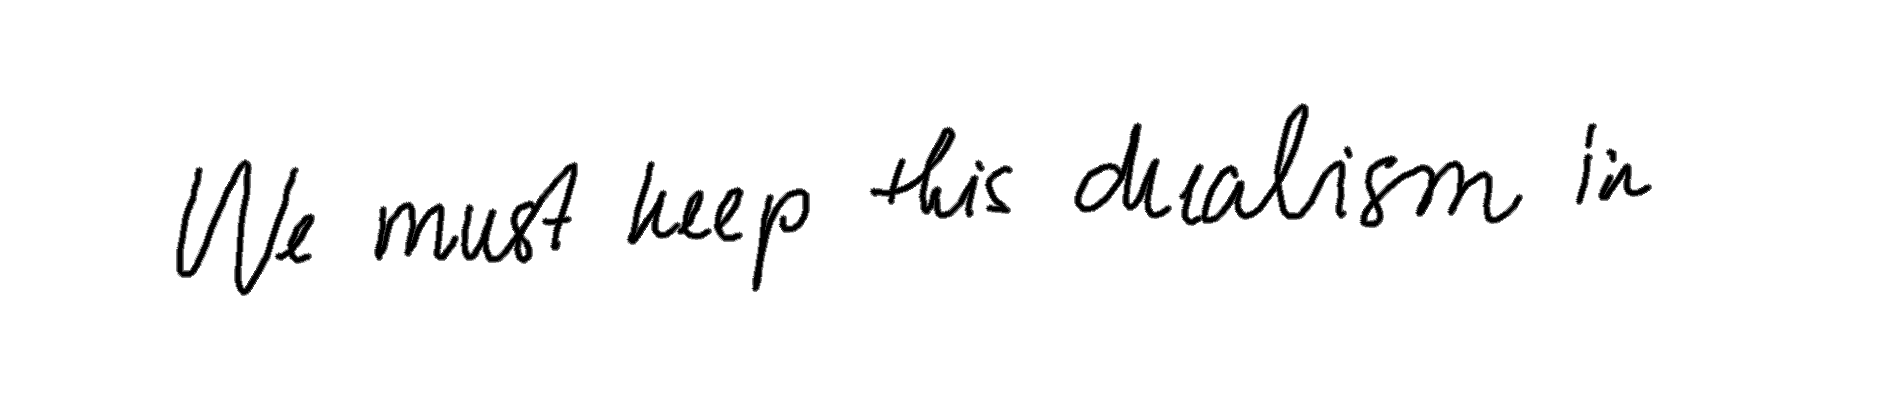 We must keep this dualism in